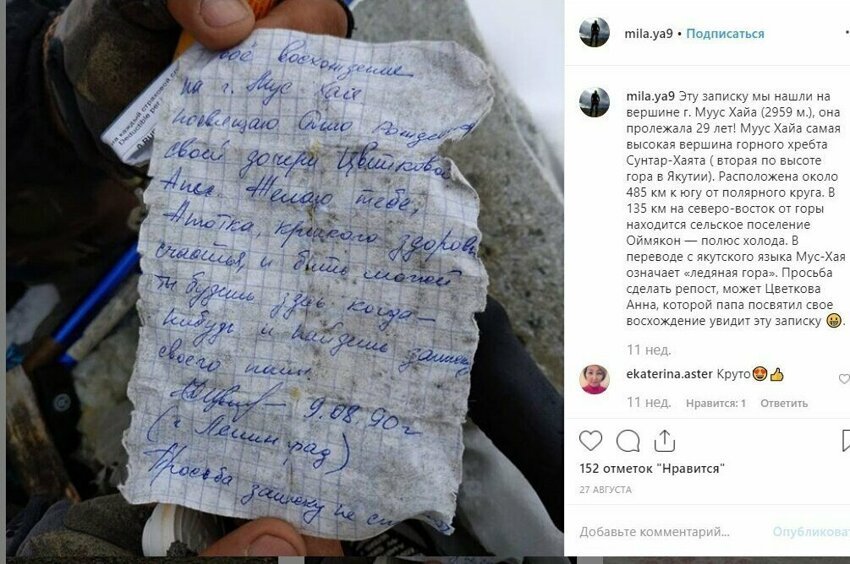 моё восхождение
на г. Мус Хая
посвящаю
своей дочери Цветковой
Анне. Желаю тебе,
Анютка, крепкого здоровья
счастья, и быть может
ты будешь здесь когда-
нибудь и найдешь записку
своего папы.
9.08.90 г
(г. Ленинград)
Просьба записку не
на каждый страховой сл
Deductible per
mila.ya9 • Подписаться
mila.ya9 Эту записку мы нашли на
вершине г. Муус Хайа (2959 м.), она
пролежала 29 лет! Муус Хайа самая
высокая вершина горного хребта
Сунтар-Хаята ( вторая по высоте
гора в Якутии). Расположена около
485 км к югу от полярного круга. В
135 км на северо-восток от горы
находится сельское поселение
Оймякон — полюс холода. В
переводе с якутского языка Мус-Хая
означает «ледяная гора». Просьба
сделать репост, может Цветкова
Анна, которой папа посвятил свое
восхождение увидит эту записку 😀.
11 нед.
ekaterina.aster Круто😍👍
11 нед. Нравится: 1 Ответить
152 отметок "Нравится"
27 АВГУСТА
Добавьте комментарий... Опубликоват